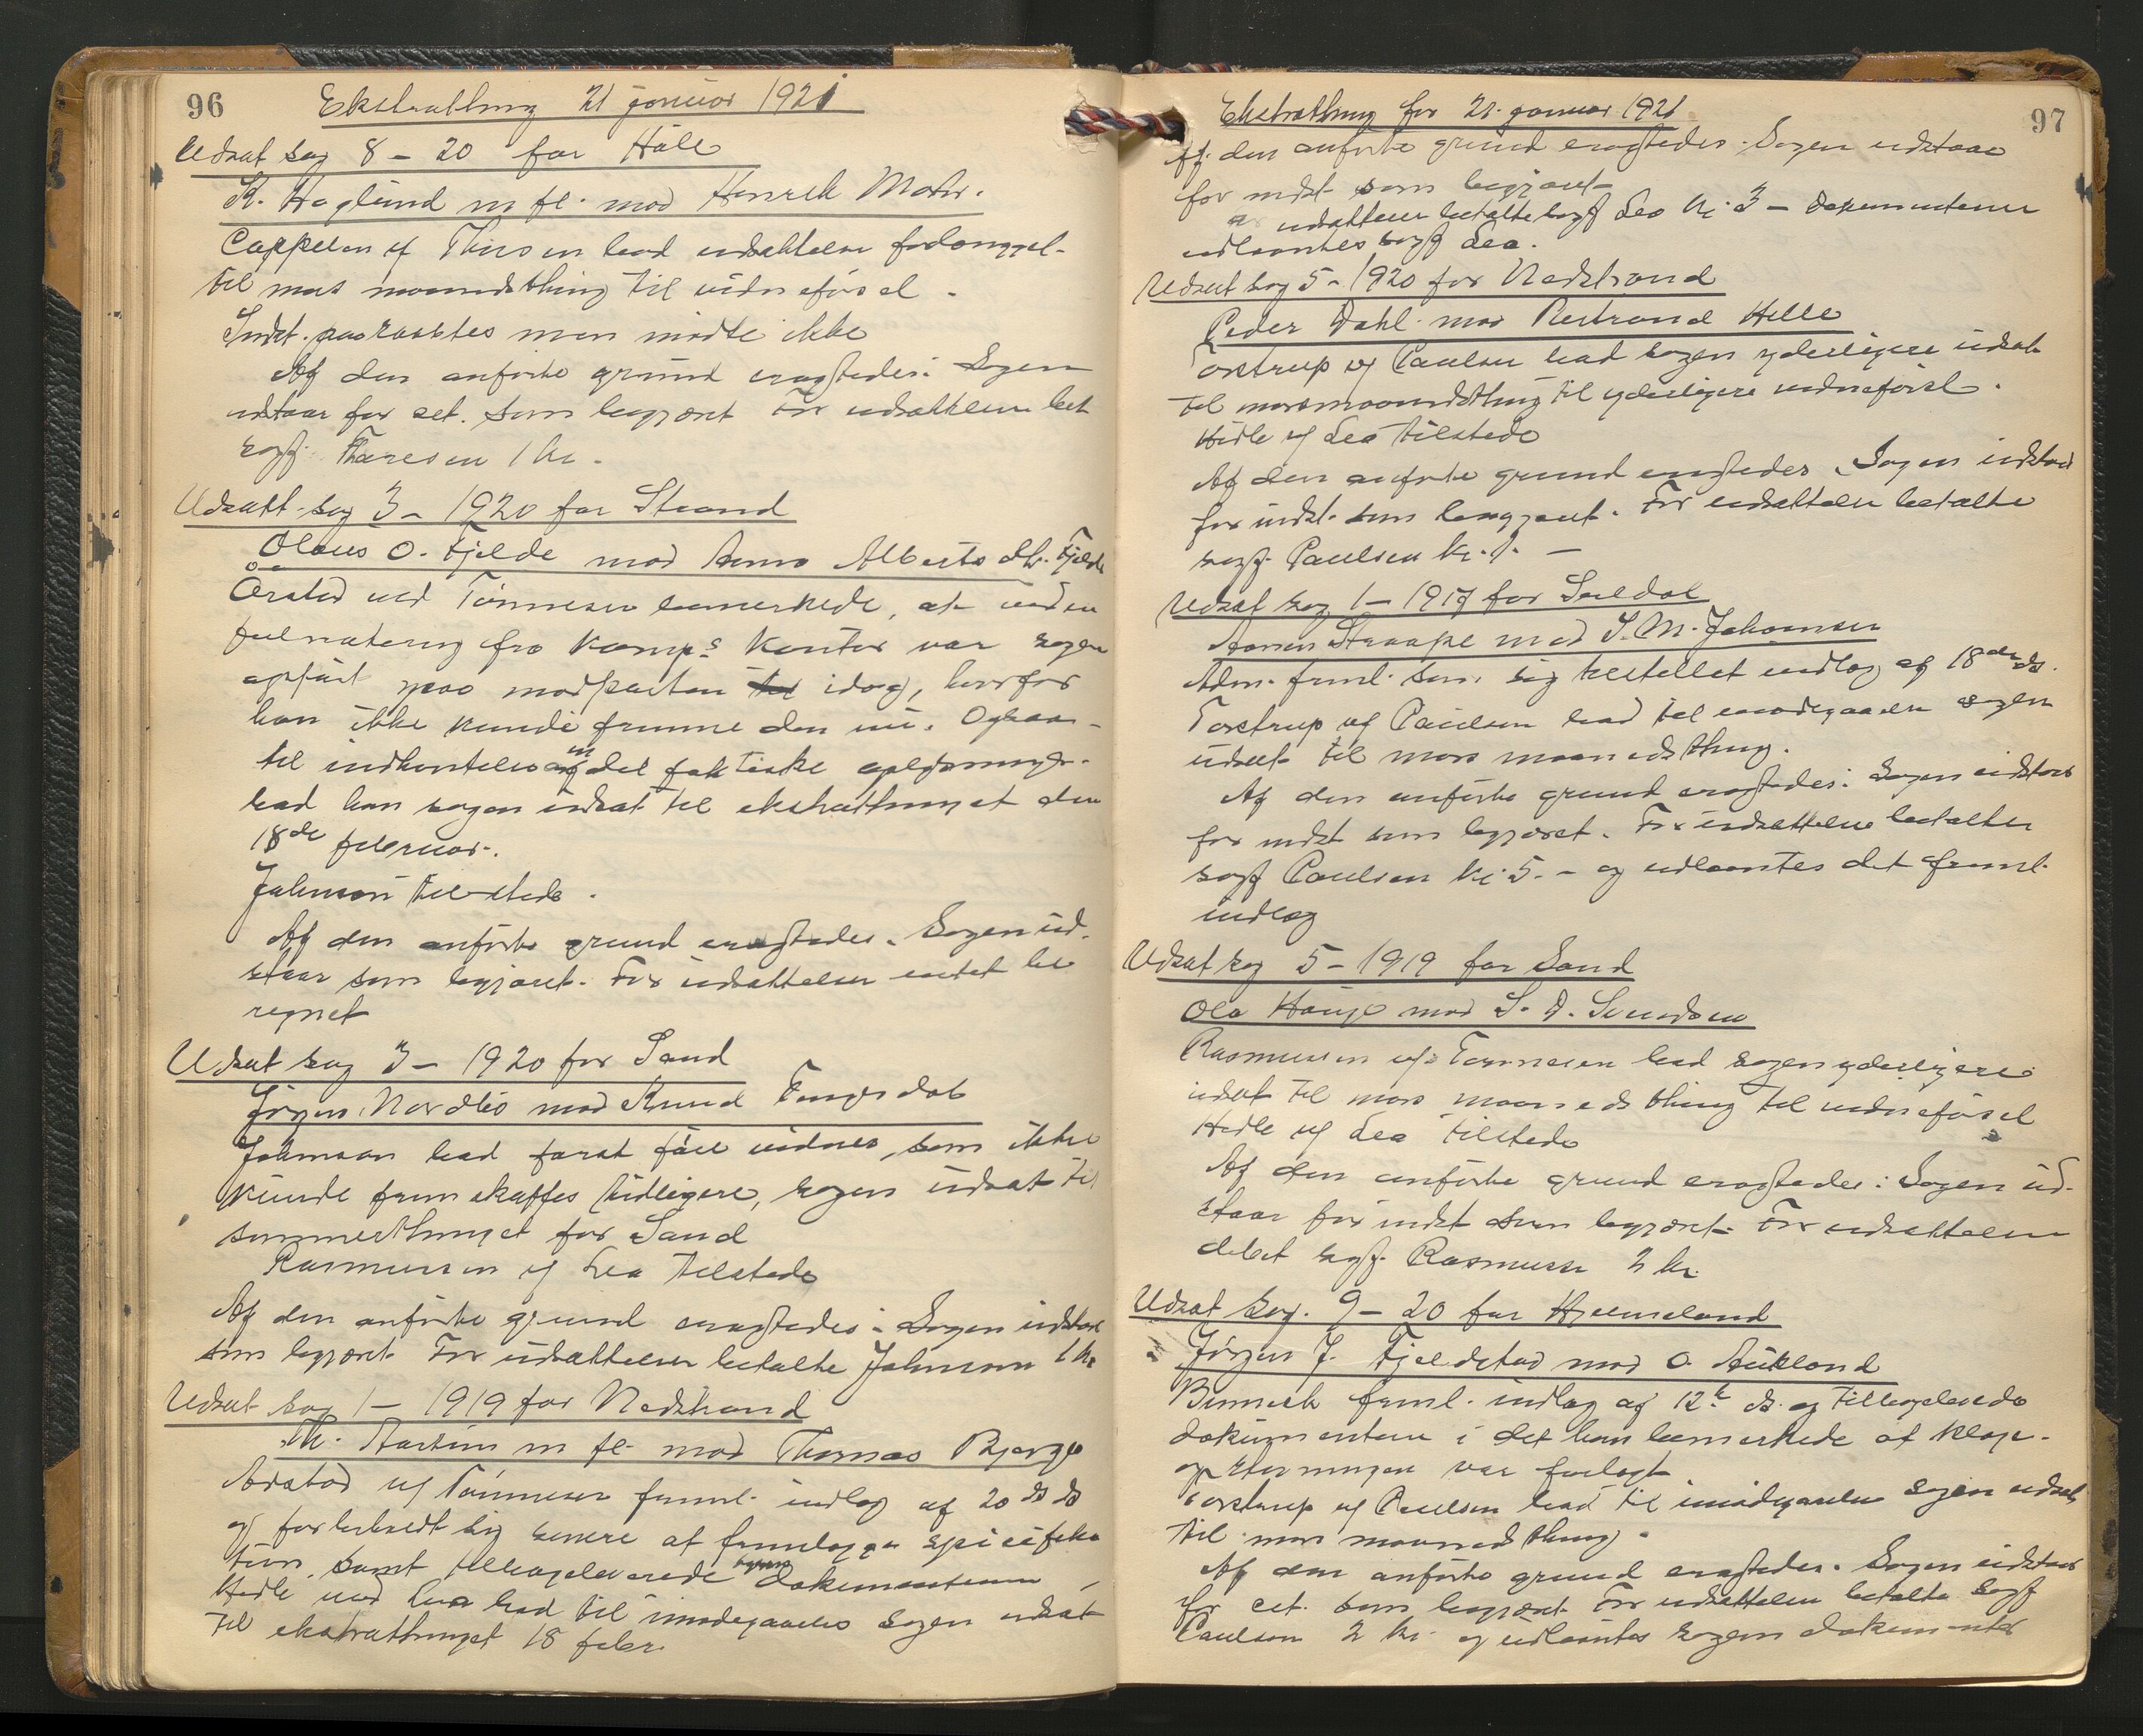 96
Ekstratthing 21 januar 1921
Udsat sag 8 – 20 for Håle
K. Haglund m fl. mod Henrik
Cappelen v Thiesen bad udsættelse forlænget
til mars maanedsthing til vidneførsel.
Indst. paaraabtes men mødte ikke
Af den anførte grund eragtedes: Sagen
udstaar for set. som begjæret For udsættelsen bet
sagf. Thiesen 1 kr.
Udsatt sag 3 – 1920 for Strand
Olaus O. Fjelde mod Anna Alberts dtr. Fjelde
Årstad ved Tønnesen bemerkede, at ved en
feilnotering fra Kamps kontor var sagen
opført paa modparten idag, hvorfor
han ikke kunde fremme den nu. Ogsaa
til indhentelse af en del faktiske oplysninger
bad han sagen udsat til ekstratthinget den
18de februar.
Johnson tilstede.
Af den anførte grund eragtedes. Sagen ud-
staar som begjæret. For udsættelsen intet be
regnet
Udsat sag 3 – 1920 for Sand
Jørgen Nordbø mod Knud Tengesdal
Johnson bad forat føre vidner, som ikke
kunde fremskaffes tidligere, sagen udsat til
sommerthinget for Sand
Rasmussen v Lea tilstede
Af den anførte grund eragtedes: Sagen udstaar
som begjæret For udsættelsen betalte Johnson 1 kr
Udsat sag 1 – 1919 for Nedstrand
Th. m fl. mod Thomas Bjerge
Årstad v Tønnesen freml. indlæg af 20 ds ds
og forbeholdt sig senere at fremlægge specifika
tion, samt tilbageleverede dokumenterne
Helle ved Lea bad til imødegaaelse sagen udsat
til ekstratthinget 18 febr.
97
Ekstratthing for 21. januar 1921
Af den anførte grund eragtedes. Sagen udstaar
for indst som begjæret
udsættelsen betalte sagf Lea kr. 3 – Dokumenterne
udlaantes sagf Lea.
Udsat sag 5 – 1920 for Nedstrand
Peder Dahl mod Helle
Torstrup v Paulsen bad sagen yderligere udsat
til marsmaanedsthing til yderligere vidneførsel.
Helle v Lea tilstede
Af den anførte grund eragtedes. Sagen udstaar
for indst. som begjæret. For udsættelsen betalte
sagf. Paulsen kr. 1. –
Udsat sag 1 – 1917 for Suldal
Straape mod S. M. Johannsen
Adm. freml. som sig bestillet indlæg af 18de ds.
Torstrup v Paulsen bad til imødegaaelse sagen
udsat til mars maanedsthing.
Af den anførte grund eragtedes: Sagen udstaar
for indst som begjæret. For udsættelsen betaltes
sagf Paulsen kr. 5. – og udlaantes det freml.
indlæg
Udsat sag 5 – 1919 for Sand
Ola Hauge mod S. D.
Rasmussen v. Tønnesen bad sagen yderligere
udsat til mars maanedsthing til vidneførsel
Helle v Lea tilstede
Af den anførte grund eragtedes: Sagen ud-
staar for indst som begjæret For udsættelsen
debet sagf. Rasmussen 2 kr.
Udsat sag. 9 – 20 for Hjelmeland
Jørgen J. Fjeldstad mod O. Aukland
freml. indlæg af 12te ds. og tilbagelevede
dokumenterne i det han bemerkede at klage-
var forlagt
Torstrup v Paulsen bad til imødegaaelse sagen udsat
til mars maanedsthing.
Af den anførte grund eragtedes. Sagen udstaar
for set. som begjæret For udsættelsen betalte sagf
Paulsen 2 kr. og udlaantes sagens dokumenter